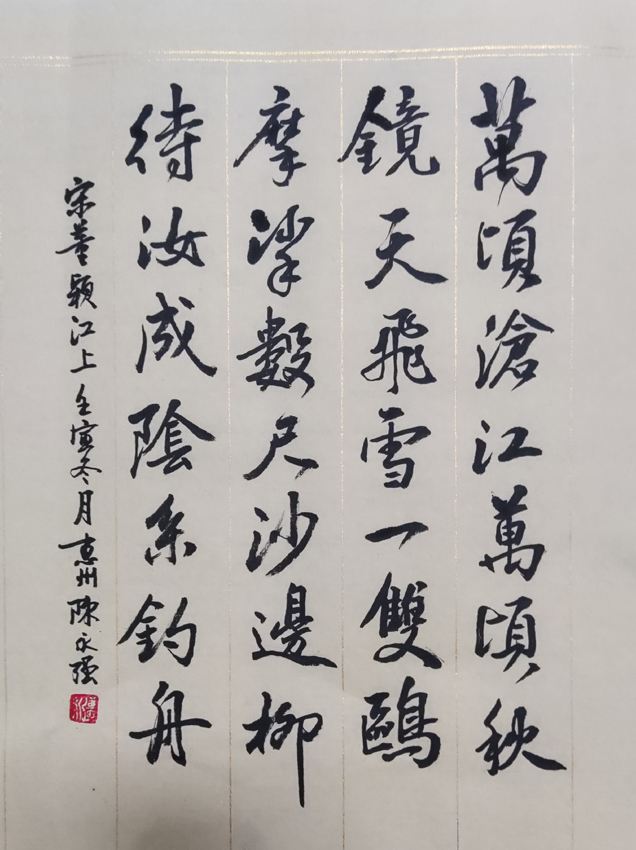 萬頃滄江萬頃秋
鏡天飛雪一雙鷗
摩挲數尺沙邊柳
待汝成陰系釣舟
宋董穎江上 壬寅冬月 惠州陳永強